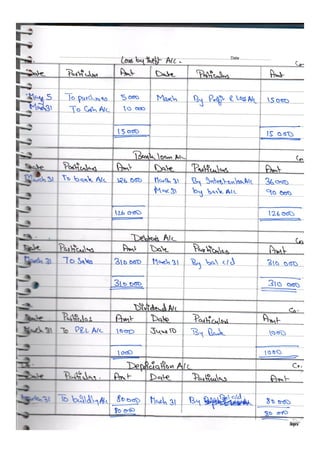 Date
Loss by theft A/c.
Cr
Date Particulars Amt Date Particulars Amt
May 5 To purchases 5000 March By Profit & Loss A/c 15000
March 31 To Cash A/c 10,000
15000 15000
Bank loan A/c
Cr
Date Particulars Amt Date Particulars Amt
March 31 To bank A/c 126 000 March 31 By Interest on loan A/c 36000
Mar 31 by bank A/c 90 000
126 000 126000
Debtors A/c
Cr
Date Particulars Amt Date Particulars Amt
March 31 To Sales 310 000 March 31 By bal c/d 310 000
310 000 310 000
Dividend A/c
Cr.
Date Particulars Amt Date Particulars Amt
March 31 To P&L A/c 1000 June 10 By Bank 1000
1000 1000
Depiciation A/c
Cr.
Date Particulars. Amt Date Particulars Amt
March 31 To building A/c 80000 March 31 By bal c/d 80 000
80 000 80 000